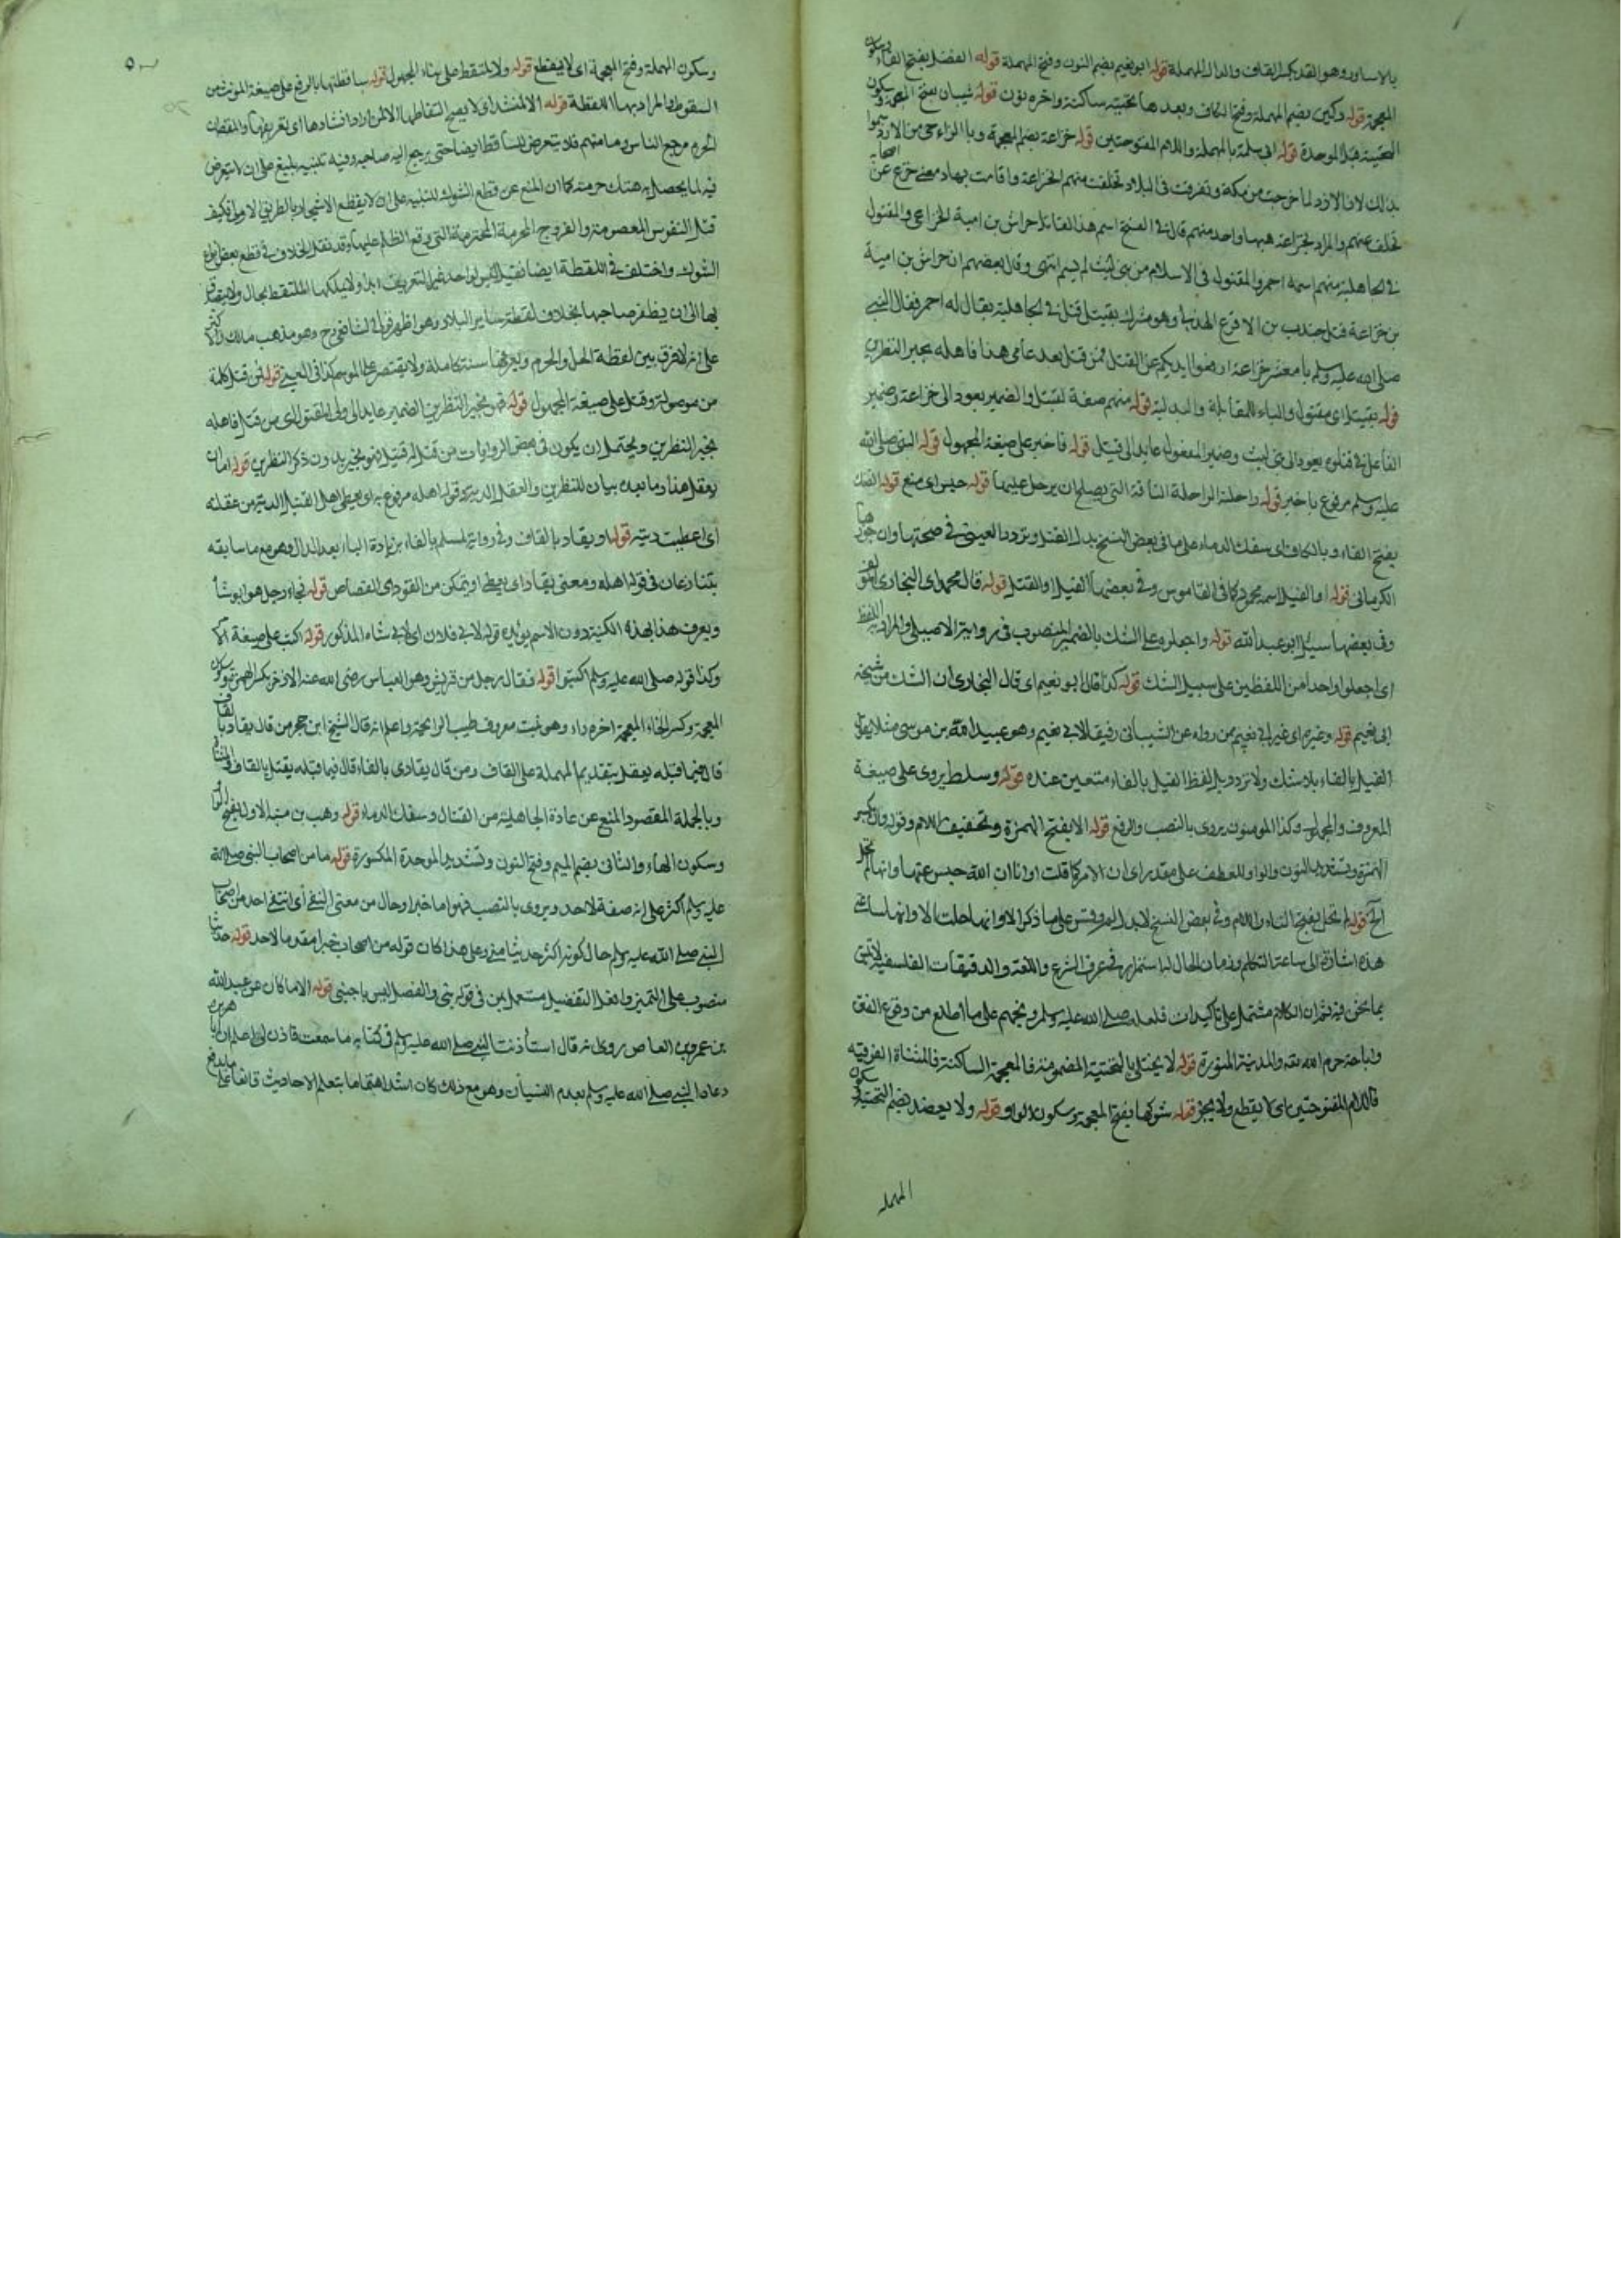 بالاسار وهو القد بكسر القاف والدال المهملة قوله ابو نعيم بضم النون وفتح المهملة قوله الفضل بفتح الفاء وسكون
المعجمة قوله دكين بضم المهملة وفتح الكاف وبعدها تحتية ساكنة واخره نون قوله شيبان بفتح المعجمة وسكون
التحتية قبل الموحدة قوله ابى سلمة بالمهملة واللام المفتوحتين قوله خزاعة بضم المعجمة وبالزاء حى من الازد سموا
بذلك لان الازد لما خرجت من مكة وتفرقت فى البلاد تخلفت منهم الخزاعة واقامت بها ومعنى خزع عن اصحابه
تخلف عنهم والمراد بخزاعة ههنا واحد منهم قال فى الفتح اسم هذا القاتل خراش بن امية الخزاعي والمقتول
فى الجاهلية منهم اسمه احمر والمقتول فى الاسلام من بنى ليث لم يسم انتهى وقال بعضهم ان خراش بن امية
من خزاعة قتل جندب بن الاقرع الهذلى وهو مشرك بقتيل قتل فى الجاهلية يقال له احمر فقال النبي
صلى الله عليه وسلم يا معشر خزاعة ارفعوا ايديكم عن القتل فمن قتل بعد عامى هذا فاهله بخير النظرين
قوله بقتيل اى مقتول والباء للمقابلة والبدلية قوله منهم صفة لقتيل والضمير يعود الى خزاعة وضمير
الفاعل فى قتلوه يعود الى بنى ليث وضمير المفعول عايد الى قتيل قوله فاخبر على صيغة المجهول قوله النبى صلى الله
عليه وسلم مرفوع باخبر قوله راحلته الراحلة الناقة التى يصلح ان يرحل عليها قوله حبس اى منع قوله الفتك
بفتح الفاء وبالكاف اى سفك الدماء على ما فى بعض النسخ بدل القتل وتردد العينى فى صحتها وان جوزها
الكرمانى قوله او الفيل اسمه محمود كما فى القاموس وفى بعضها الفيل او القتل قوله قال محمد اى البخارى المؤلف
وفى بعضها سئل ابو عبد الله قوله واجعلوه على الشك بالضمير المنصوب فى رواية الاصيلى والمراد به اللفظ
اى اجعلوا واحدا من اللفظين على سبيل الشك قوله كذا قال ابو نعيم اى قال البخارى ان الشك من شيخه
ابى نعيم قوله وغيره اى غير ابى نعيم ممن رواه عن الشيبانى رفيقا لابى نعيم وهو عبيد الله بن موسى مثلا يقول
الفيل بالفاء بلا شك ولا تردد بل لفظ الفيل بالفاء متعين عنده قوله وسلط يروى على صيغة
المعروف والمجهول وكذا المومنون يروى بالنصب والرفع قوله الا بفتح الهمزة وتخفيف اللام وقوله وان بكسر
الهمزة وتشديد النون والواو للعطف على مقدر اى ان الامر كما قلت او انا ان الله حبس عنها وانها لم تحل
الخ قوله لم تحل بفتح التاء واللام وفى بعض النسخ لا بدل لم وقس على ما ذكر الا وانها حلت الا وانها ساعتى
هذه اشارة الى ساعة التكلم وزمان الحال لها استمرار فى عرف الشرع واللغة والدقيقات الفلسفية لا تليق
بما نحن فيه ثم ان الكلام مشتمل على تاكيدات فلعله صلى الله عليه وسلم ونجهم على ما اطلع من وقوع الفتن
واباحة حرم الله تعه والمدينة المنورة قوله لا يختلى بالتحتية المضمومة فالمعجمة الساكنة فالمثناة الفوقية
فاللام المفتوحتين اى لا يقطع ولا يجز قوله شوكها بفتح المعجمة وسكون الواو قوله ولا يعضد بضم التحتية وسكون
المهمله
وسكون المهملة وفتح المعجمة اى لا يقطع قوله ولا تلتقط على بناء المجهول قوله ساقطتها بالرفع على صيغة المونث من
السقوط والمراد بها اللقطة قوله الا لمنشد اى لا يصح التقاطها الا لمن اراد انشادها اى تعريفها والمقصد ان
الحرم مرجع الناس ومامنهم فلا يتعرض للساقط ايضا حتى يرجع اليه صاحبه وفيه تنبيه بليغ على ان لا يتعرض
فيه لما يحصل به هتك حرمته كما ان المنع عن قطع الشوك للتنبيه على ان لا يقطع الاشجار بالطريق الاولى فكيف
قتل النفوس المعصومة والفروج المحرمية المحترمة التى وقع الظلم عليها وقد نقل الخلاف فى قطع بعض
الشوك واختلف فى اللقطة ايضا فقيل ليس لواحد غير التعريف ابدا ولا يملكها الملتقط بحال ولا يتصدق
بها الى ان يظفر صاحبها بخلاف لقطة ساير البلاد وهو اظهر قولى الشافعى رح وهو مذهب مالك والاكثر
على انه لا فرق بين لقطة الحل والحرم ويعرفها سنة كاملة ولا يقتصر على الموسم كذا فى العينى قوله فمن قتل كلمة
من موصولة وقتل على صيغة المجهول قوله فهو بخير النظرين الضمير عايد الى ولى المقتول اى من قتل فاهله
بخير النظرين ويحتمل ان يكون فى بعض الروايات من قتل له قتيل فهو بخير بدون ذكر النظرين قوله اما ان
يعقل هذا وما بعده بيان للنظرين والعقل الدية وقوله اهله مرفوع به اى يعطى اهل القتيل الدية من عقلته
اى اعطيت ديته قوله او يقاد بالقاف وفى رواية لمسلم بالفاء بزيادة الياء بعد الدال وهو مع ما سابقه
يتنازعان فى قوله اهله ومعنى يقاد اى يعطى او يتمكن من القود اى القصاص قوله فجاء رجل هو ابو شاه
ويعرف هذا بهذه الكنية دون الاسم يوئده قوله لابى فلان اى لابى شاه المذكور قوله اكتب على صيغة الامر
وكذا قوله صلى الله عليه وسلم اكتبوا قوله فقال رجل من قريش وهو العباس رضى الله عنه الاذخر بكسر الهمزة وسكون
المعجمة وكسر الخاء المعجمة اخره راء وهو نبت معروف طيب الرايحة واعلم انه قال الشيخ ابن حجر من قال يقاد بالقاف
قال فيما قبله يعقل بتقديم المهملة على القاف ومن قال يفادى بالفاء قال فيما قبله يقتل بالقاف والمثناة
وبالجملة المقصود المنع عن عادة الجاهلية من القتال وسفك الدماء قوله وهب بن منبه الاول بفتح الواو
وسكون الهاء والثانى بضم الميم وفتح النون وتشديد الموحدة المكسورة قوله ما من اصحاب النبى صلى الله
عليه وسلم اكثر على انه صفة لاحد ويروى بالنصب فهو اما خبر او حال من معنى النفي أى انتفى احد من اصحاب
النبى صلى الله عليه وسلم حال كونه اكثر حديثا منى وعلى هذا كان قوله من اصحاب خبرا مقدما لاحد قوله حديثا
منصوب على التميز وافعل التفضيل مستعمل بمن فى قوله منى والفصل ليس باجنبى قوله الا ما كان من عبد الله
بن عمرو بن العاص روى انه قال استأذنت النبى صلى الله عليه وسلم فى كتابة ما سمعت فاذن لى اعلم ان ابا هريرة
دعا له النبى صلى الله عليه وسلم بعدم النسيان وهو مع ذلك كان اشد اهتماما بتعلم الاحاديث قانعا على